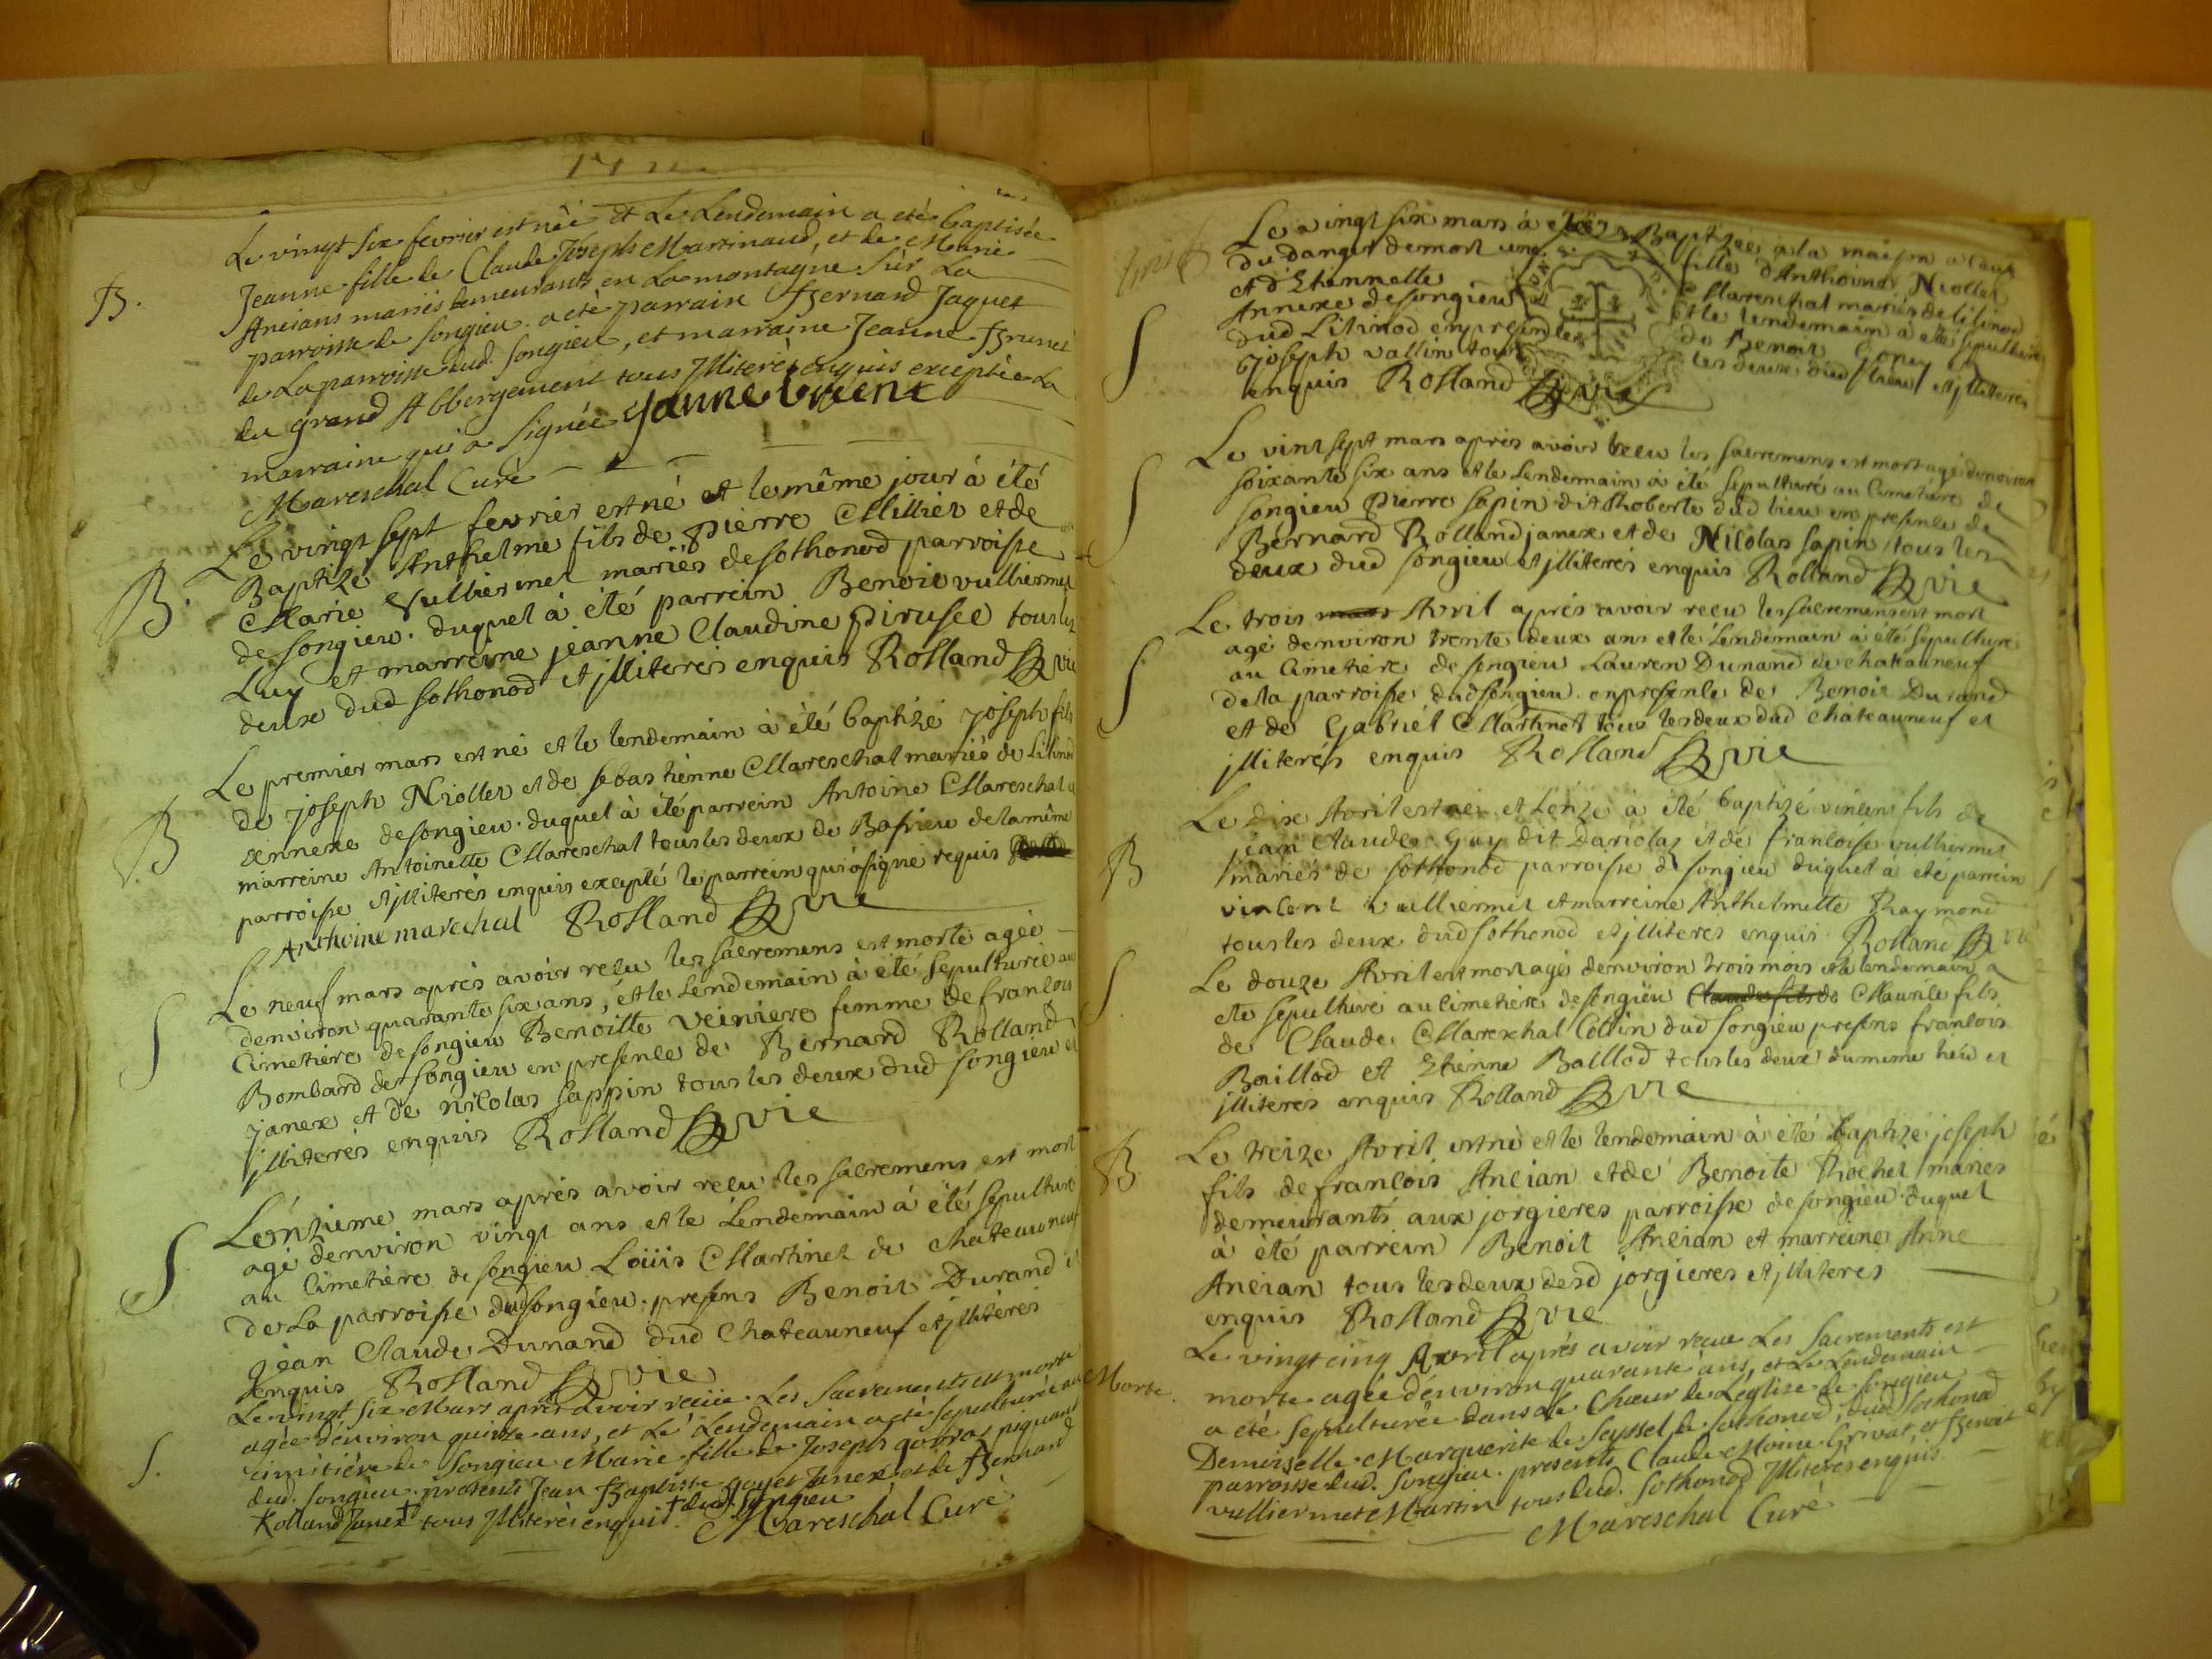 B.
Le vingt six fevrier est née et Le Lendemain a eté baptisée
Jeanne fille de Claude Joseph Martinaud, et de Marie
Ancians mariés demeurants en La montagne sur La
parroisse de songieu. a eté parrain Bernard Jaquet
de La parroisse dud. songieu, et marraine Jeanne Brunet
du grand Abbergement tous Illiterès enquis exceptée La
marraine qui a signée janne brune
Mareschal Curé
B.
Le vingt sept fevrier est né et le même jour à été
Baptizé Anthelme fils de pierre Millier et de
Marie Vulliermet mariés de sothonod parroisse
de songieu. duquel à été parrein Benoit vulliermet
Luy et marreine jeanne Claudine pirusee tous les
deux dud sothonod et jlliterés enquis Rolland vie
B
Le premier mars est né et le lendemain à été baptizé joseph fils
de joseph Niollet et de sebastienne Mareschal mariés de Lilinod
annexe de songieu. duquel à été parrein Antoine Mareschal et
marreine Antoinette Mareschal tous les deux de Bassieu de la même
parroisse et jlliterés enquis excepté le parrein qui a signé requis
Anthoine marechal Rolland vie
S
Le neuf mars aprés avoir reçu les sacremens est morte agée
denviron quarante six ans, et le Lendemain à été sepulturée au
Cimetiére de songieu Benoitte Veiniere femme de françois
Bombard de songieu en presence de Bernard Rolland
janex et de nicolas sappin tous les deux dud songieu et
jlliterés enquis Rolland vie
S
Leónzieme mars aprés avoir reçu les sacremens est mort
agé denviron vingt ans et le Lendemain à été sepulturé
au Cimetiére de songieu Loüis Martinet de chateauneuf
de La parroisse dud songieu. presens Benoit Durand et
jean Claude Dunand dud Chateauneuf et jlliterés
enquis Rolland vie
S.
Le vingt six Mars aprés avoir reçüe Les Sacrements est morte
agée d'environ quinze ans, et Le Lendemain a eté sepulturée au
cimitiére de songieu Marie fille de Joseph piquand
dud. songieu. presents Jean Baptiste goyet Janex et de Bernard
Rolland Janex † tous Illiterès enquis. † dud. songieu
Mareschal Curé
S
Le vingt six mars à été Baptizée à la maison a Cause
du danger de mort une fille d'Anthoine Niollet
et d'Etiennette Mareschal mariés de lilinod
Annexe de songieu et le lendemain à été sepulturée
dud Lilinod en presence de Benoit Goney et
joseph vallin tous les deux dud lieu et jlliterés
enquis Rolland vie
S
Le vint sept mars aprés avoir reçu les sacremens est mort agé denviron
soixante six ans et le Lendemain à été sepulturé au Cimetiére de
songieu pierre sapin dit Roberte dud lieu en presence de
Bernard Rolland janex et de Nicolas sapin tous les
deux dud songieu et jlliterés enquis Rolland vie
S
Le trois mars Avril aprés avoir reçu les sacremens est mort
agé denviron trente deux ans et le Lendemain à été sepulturé
au Cimetiére de songieu Lauren Dunand de chateauneuf
de la parroisse dud songieu. en presence de Benoit Durand
et de Gabriél Martinet tous les deux dud chateauneuf et
jlliterés enquis Rolland vie
B
Le dix Avril est né et Lonze à été baptizé vincen fils de
jean Claude Guy dit Dariolaz et de françoise vulliermet
mariés de sothonod parroisse de songieu duquel à eté parrein
vincent vulliermet et marreine Anthelmette Raymond
tous les deux dud sothonod et jlliterés enquis Rolland vie
S
Le douze Avril est mort agé denviron trois mois et le lendemain a
ete sepulturé au Cimetiére de songieu Claude fils de Maurile fils
de Claude Mareschal Collin dud songieu presens françois
Baillod et Etienne Balllod tous les deux du meme lieu et
jlliterés enquis Rolland vie
B
Le treize Avril est né et le lendemain à été baptizé joseph
fils de françois Ancian et de Benoite Rochet mariés
demeurants aux jorgieres parroisse de songieu. duquel
à été parrein Benoit Ancian et marreine Anne
Ancian tous les deux desd jorgieres et jlliterés
enquis Rolland vie
Morte
Le vingt cinq Avril aprés avoir reçue Les Sacrements est
morte agée d'environ quarante ans, et Le Lendemain
a eté sepulturée dans le Chœur de L'eglise de songieu
Demoiselle Marguerite de Seyssel de sothonod, dud. sothonod
parroisse dud. songieu. presents Claude Moine Grivat, et Benoit
vulliermet Martin tous dud. sothonod Illiterès enquis.
Mareschal Curé